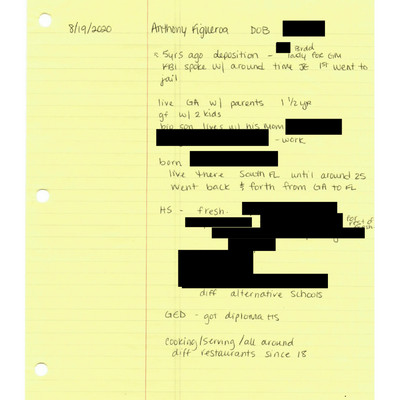 8/19/2020 Anthony Figueroa DOB
≈ 5yrs ago deposition - Brad
lady for GM
FBI spoke w/ around time JE 1st went to
jail
live GA w/ parents 1 1/2 yr
gf w/ 2 kids
bio son lives w/ his mom
- work
born
live there South FL until around 25
went back & forth from GA to FL
HS - fresh.
for rest of
diff alternative schools
GED - got diploma HS
cooking/serving/all around
diff restaurants since 18